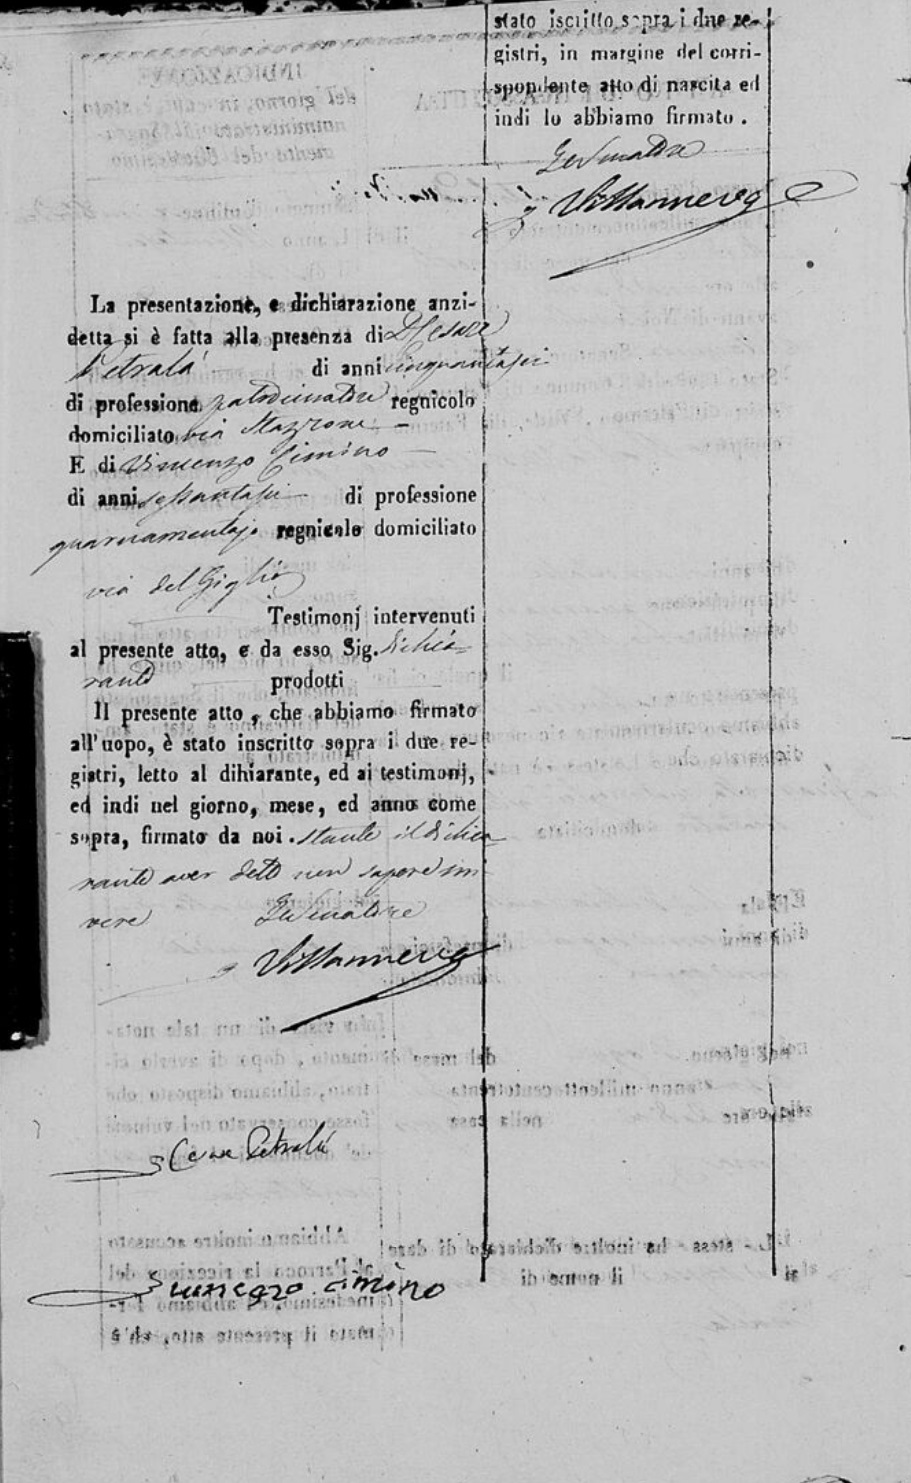 stato iscritto sopra i due re-
gistri, in margine del corri-
spondente atto di nascita ed
indi lo abbiamo firmato.
Il Senatore
Villanueva
La presentazione, e dichiarazione anzi-
detta si è fatta alla presenza di D. Cesare
Petralá di anni cinquantasei
di professione patrocinatore regnicolo
domiciliato via Stazzone
E di Vincenzo Cimino
di anni sessantasei di professione
guarnamentajo regnicolo domiciliato
via del Giglio
Testimonj intervenuti
al presente atto, e da esso Sig. dichia-
rante prodotti
Il presente atto, che abbiamo firmato
all'uopo, è stato inscritto sopra i due re-
gistri, letto al dihiarante, ed ai testimonj,
ed indi nel giorno, mese, ed anno come
sopra, firmato da noi. stante il dichia-
rante aver detto non sapere scri-
vere Il Senatore
Villanueva
Cesare Petralá
Vincenzo Cimino